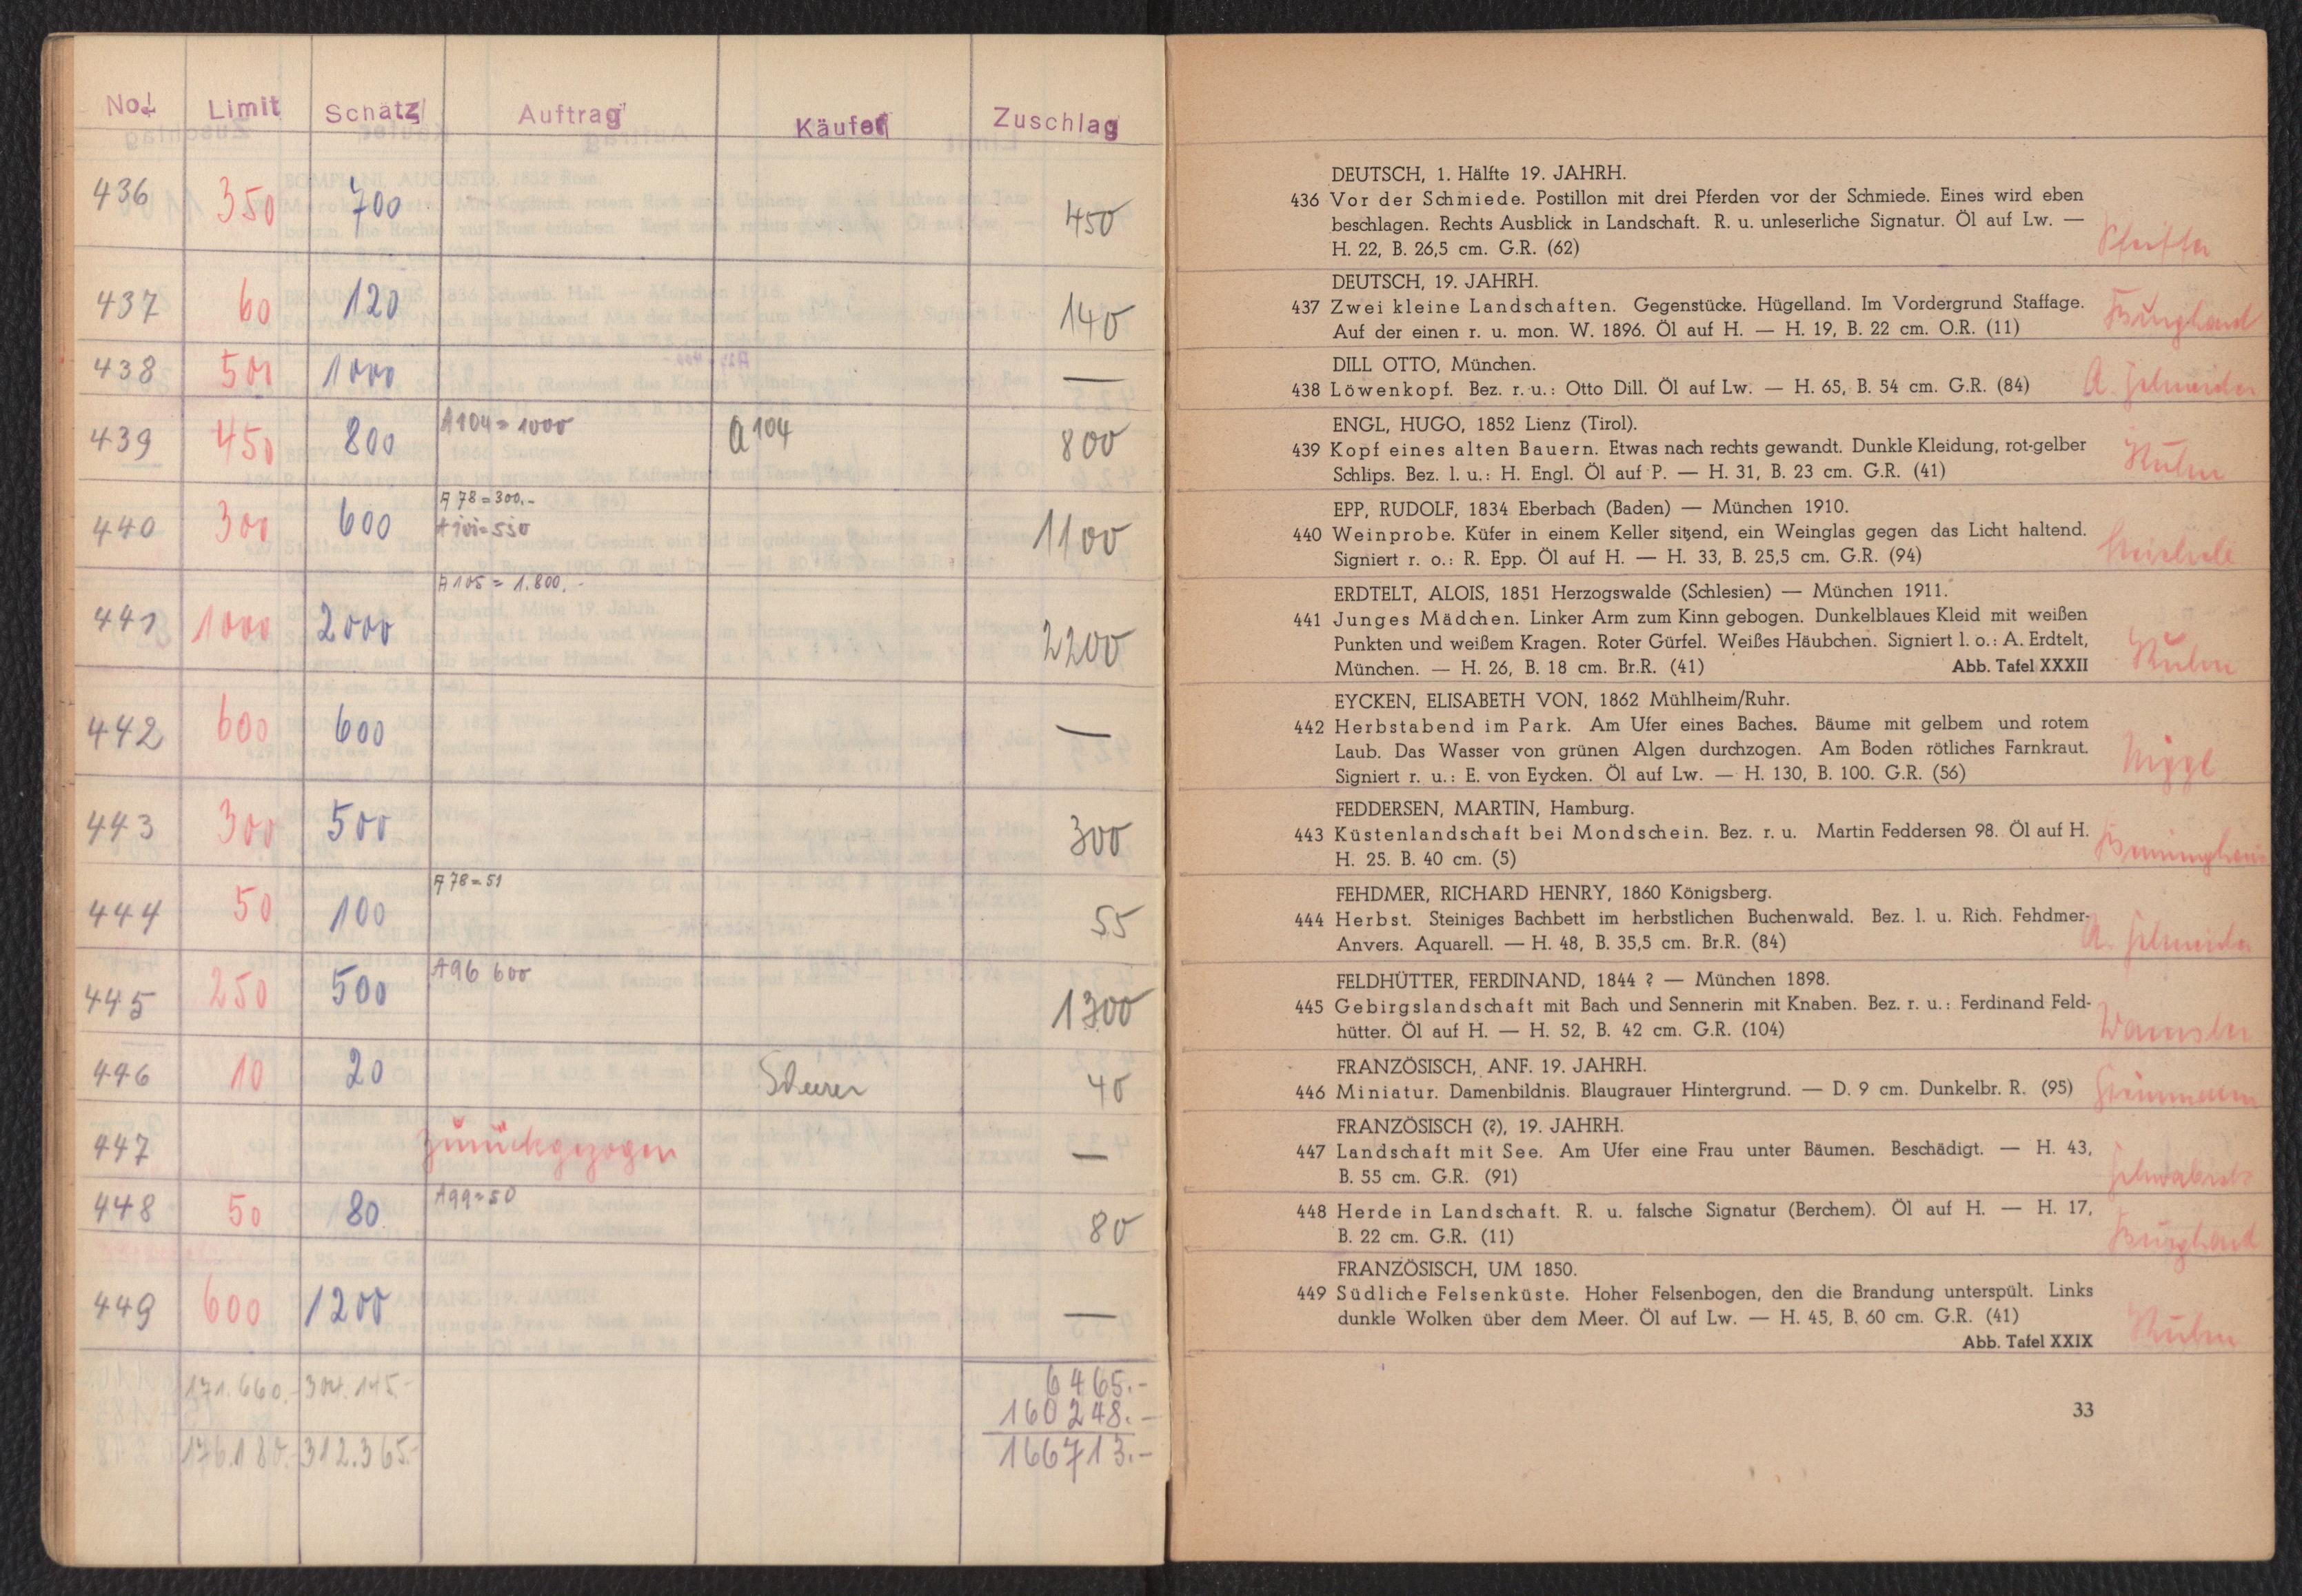 No. Limit Schätz Auftrag Käufer Zuschlag
436 350 700 450
437 60 120 140
438 500 1000 —
439 450 800 A104=1000 A104 800
A 78=300.-
440 300 600 1100
A105=1.800.-
441 1000 2000 2200
442 600 600 —
443 300 500 300
A78=51
444 50 100 55
445 250 500 A96 600 1300
446 10 20 40
447 zurückgezogen —
448 50 80 A99=50 80
449 600 1200 —
171.660.- 304.145.- 6465.-
160248.-
176.180.- 312.365.- 166713.-
DEUTSCH, 1. Hälfte 19. JAHRH.
436 Vor der Schmiede. Postillon mit drei Pferden vor der Schmiede. Eines wird eben
beschlagen. Rechts Ausblick in Landschaft. R. u. unleserliche Signatur. Öl auf Lw. —
H. 22, B. 26,5 cm. G.R. (62)
DEUTSCH, 19. JAHRH.
437 Zwei kleine Landschaften. Gegenstücke. Hügelland. Im Vordergrund Staffage.
Auf der einen r. u. mon. W. 1896. Öl auf H. — H. 19, B. 22 cm. O.R. (11)
DILL OTTO, München.
438 Löwenkopf. Bez. r. u.: Otto Dill. Öl auf Lw. — H. 65, B. 54 cm. G.R. (84) A. Schneider
ENGL, HUGO, 1852 Lienz (Tirol).
439 Kopf eines alten Bauern. Etwas nach rechts gewandt. Dunkle Kleidung, rot-gelber
Schlips. Bez. l. u.: H. Engl. Öl auf P. — H. 31, B. 23 cm. G.R. (41)
EPP, RUDOLF, 1834 Eberbach (Baden) — München 1910.
440 Weinprobe. Küfer in einem Keller sitzend, ein Weinglas gegen das Licht haltend.
Signiert r. o.: R. Epp. Öl auf H. — H. 33, B. 25,5 cm. G.R. (94)
ERDTELT, ALOIS, 1851 Herzogswalde (Schlesien) — München 1911.
441 Junges Mädchen. Linker Arm zum Kinn gebogen. Dunkelblaues Kleid mit weißen
Punkten und weißem Kragen. Roter Gürfel. Weißes Häubchen. Signiert l. o.: A. Erdtelt,
München. — H. 26, B. 18 cm. Br.R. (41) Abb. Tafel XXXII
EYCKEN, ELISABETH VON, 1862 Mühlheim/Ruhr.
442 Herbstabend im Park. Am Ufer eines Baches. Bäume mit gelbem und rotem
Laub. Das Wasser von grünen Algen durchzogen. Am Boden rötliches Farnkraut.
Signiert r. u.: E. von Eycken. Öl auf Lw. — H. 130, B. 100. G.R. (56) Niggl
FEDDERSEN, MARTIN, Hamburg.
443 Küstenlandschaft bei Mondschein. Bez. r. u. Martin Feddersen 98. Öl auf H.
H. 25. B. 40 cm. (5)
FEHDMER, RICHARD HENRY, 1860 Königsberg.
444 Herbst. Steiniges Bachbett im herbstlichen Buchenwald. Bez. l. u. Rich. Fehdmer-
Anvers. Aquarell. — H. 48, B. 35,5 cm. Br.R. (84) A. Schneider
FELDHÜTTER, FERDINAND, 1844 ? — München 1898.
445 Gebirgslandschaft mit Bach und Sennerin mit Knaben. Bez. r. u.: Ferdinand Feld-
hütter. Öl auf H. — H. 52, B. 42 cm. G.R. (104)
FRANZÖSISCH, ANF. 19. JAHRH.
446 Miniatur. Damenbildnis. Blaugrauer Hintergrund. — D. 9 cm. Dunkelbr. R. (95)
FRANZÖSISCH (?), 19. JAHRH.
447 Landschaft mit See. Am Ufer eine Frau unter Bäumen. Beschädigt. — H. 43,
B. 55 cm. G.R. (91)
448 Herde in Landschaft. R. u. falsche Signatur (Berchem). Öl auf H. — H. 17,
B. 22 cm. G.R. (11)
FRANZÖSISCH, UM 1850.
449 Südliche Felsenküste. Hoher Felsenbogen, den die Brandung unterspült. Links
dunkle Wolken über dem Meer. Öl auf Lw. — H. 45, B. 60 cm. G.R. (41)
Abb. Tafel XXIX
33